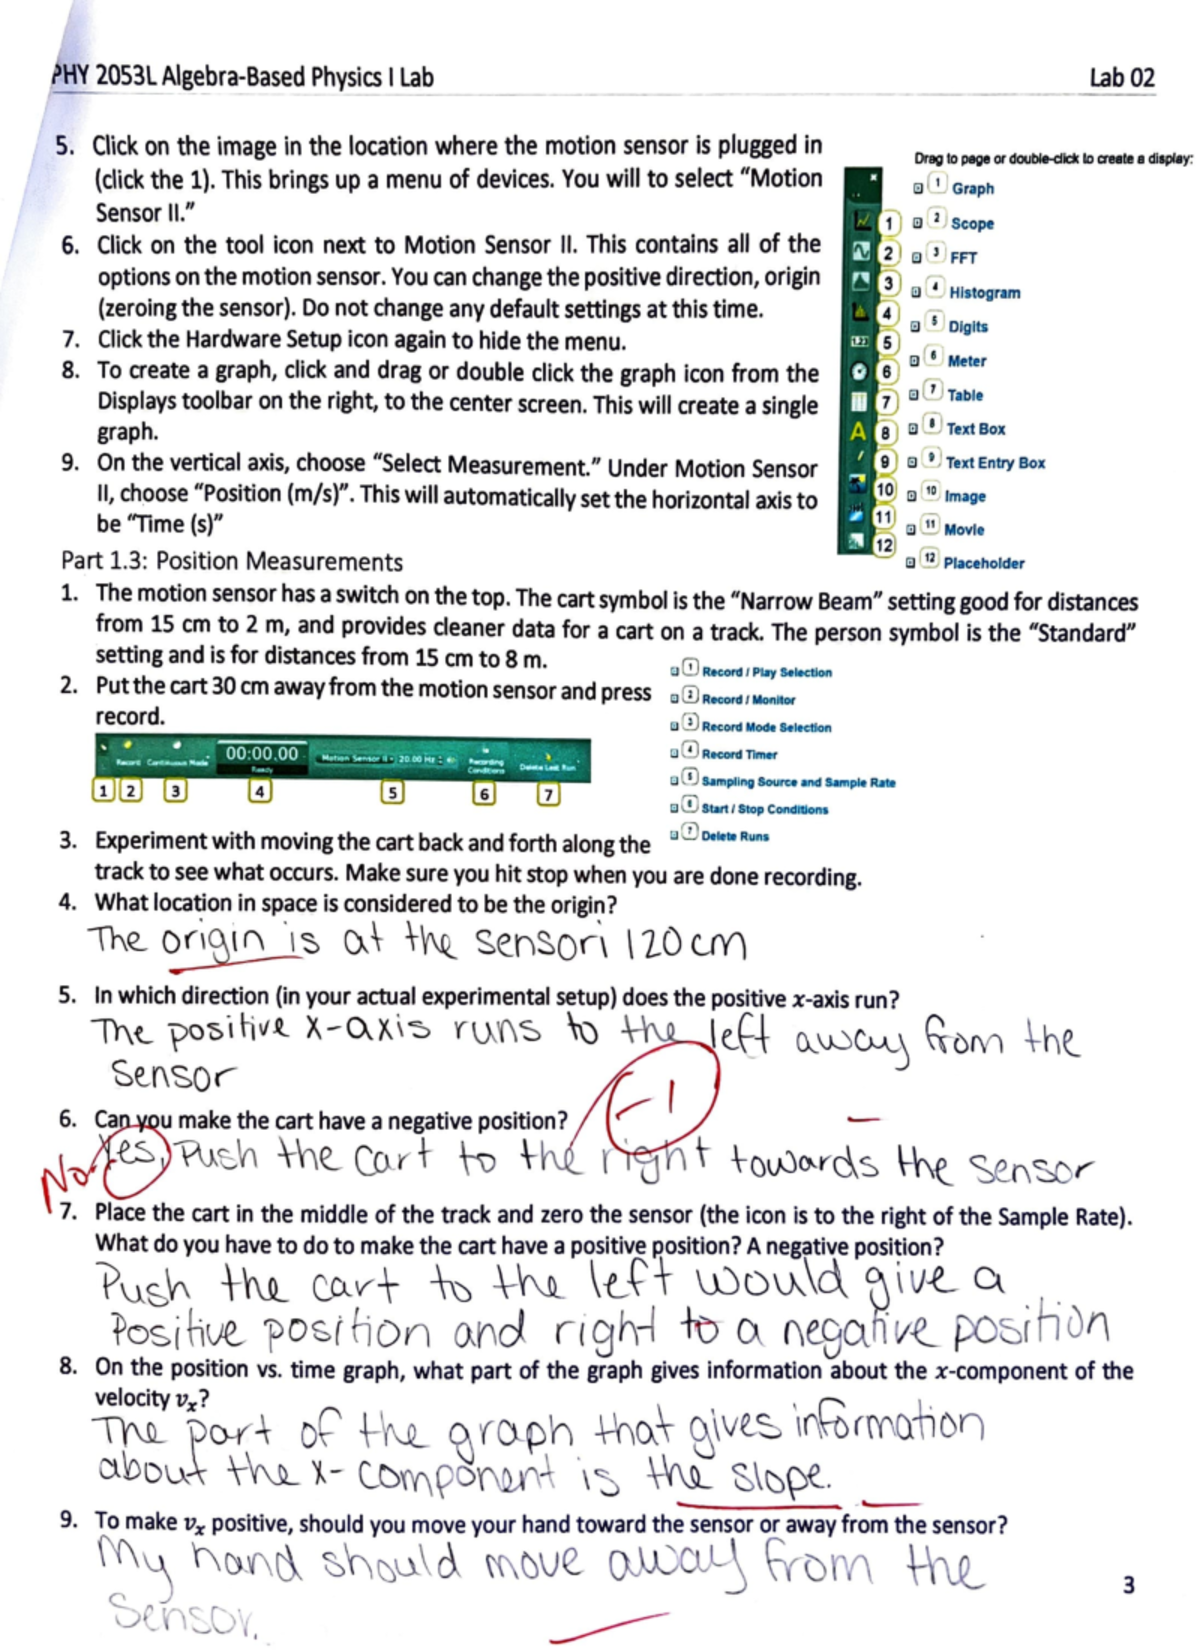 PHY 2053L Algebra-Based Physics I Lab
Lab 02
5. Click on the image in the location where the motion sensor is plugged in
(click the 1). This brings up a menu of devices. You will to select “Motion
Sensor II.”
6. Click on the tool icon next to Motion Sensor II. This contains all of the
options on the motion sensor. You can change the positive direction, origin
(zeroing the sensor). Do not change any default settings at this time.
7. Click the Hardware Setup icon again to hide the menu.
8. To create a graph, click and drag or double click the graph icon from the
Displays toolbar on the right, to the center screen. This will create a single
graph.
9. On the vertical axis, choose “Select Measurement.” Under Motion Sensor
II, choose “Position (m/s)”. This will automatically set the horizontal axis to
be “Time (s)”
Drag to page or double-click to create a display:
1 1 Graph
2 2 Scope
3 3 FFT
4 4 Histogram
5 5 Digits
6 6 Meter
7 7 Table
A 8 8 Text Box
9 9 Text Entry Box
10 10 Image
11 11 Movie
12 12 Placeholder
Part 1.3: Position Measurements
1. The motion sensor has a switch on the top. The cart symbol is the “Narrow Beam” setting good for distances
from 15 cm to 2 m, and provides cleaner data for a cart on a track. The person symbol is the “Standard”
setting and is for distances from 15 cm to 8 m.
2. Put the cart 30 cm away from the motion sensor and press
record.
1 Record / Play Selection
2 Record / Monitor
3 Record Mode Selection
4 Record Timer
5 Sampling Source and Sample Rate
6 Start / Stop Conditions
7 Delete Runs
Record Continuous Mode 00:00.00 Ready Motion Sensor II 20.00 Hz Recording Conditions Delete Last Run
1 2 3 4 5 6 7
3. Experiment with moving the cart back and forth along the
track to see what occurs. Make sure you hit stop when you are done recording.
4. What location in space is considered to be the origin?
The origin is at the sensori 120cm
5. In which direction (in your actual experimental setup) does the positive x-axis run?
The positive x-axis runs to the left away from the
sensor
-1
6. Can you make the cart have a negative position?
No Yes, Push the cart to the right towards the sensor
7. Place the cart in the middle of the track and zero the sensor (the icon is to the right of the Sample Rate).
What do you have to do to make the cart have a positive position? A negative position?
Push the cart to the left would give a
Positive position and right to a negative position
8. On the position vs. time graph, what part of the graph gives information about the x-component of the
velocity vx?
The part of the graph that gives information
about the x-component is the slope.
9. To make vx positive, should you move your hand toward the sensor or away from the sensor?
My hand should move away from the
sensor.
3